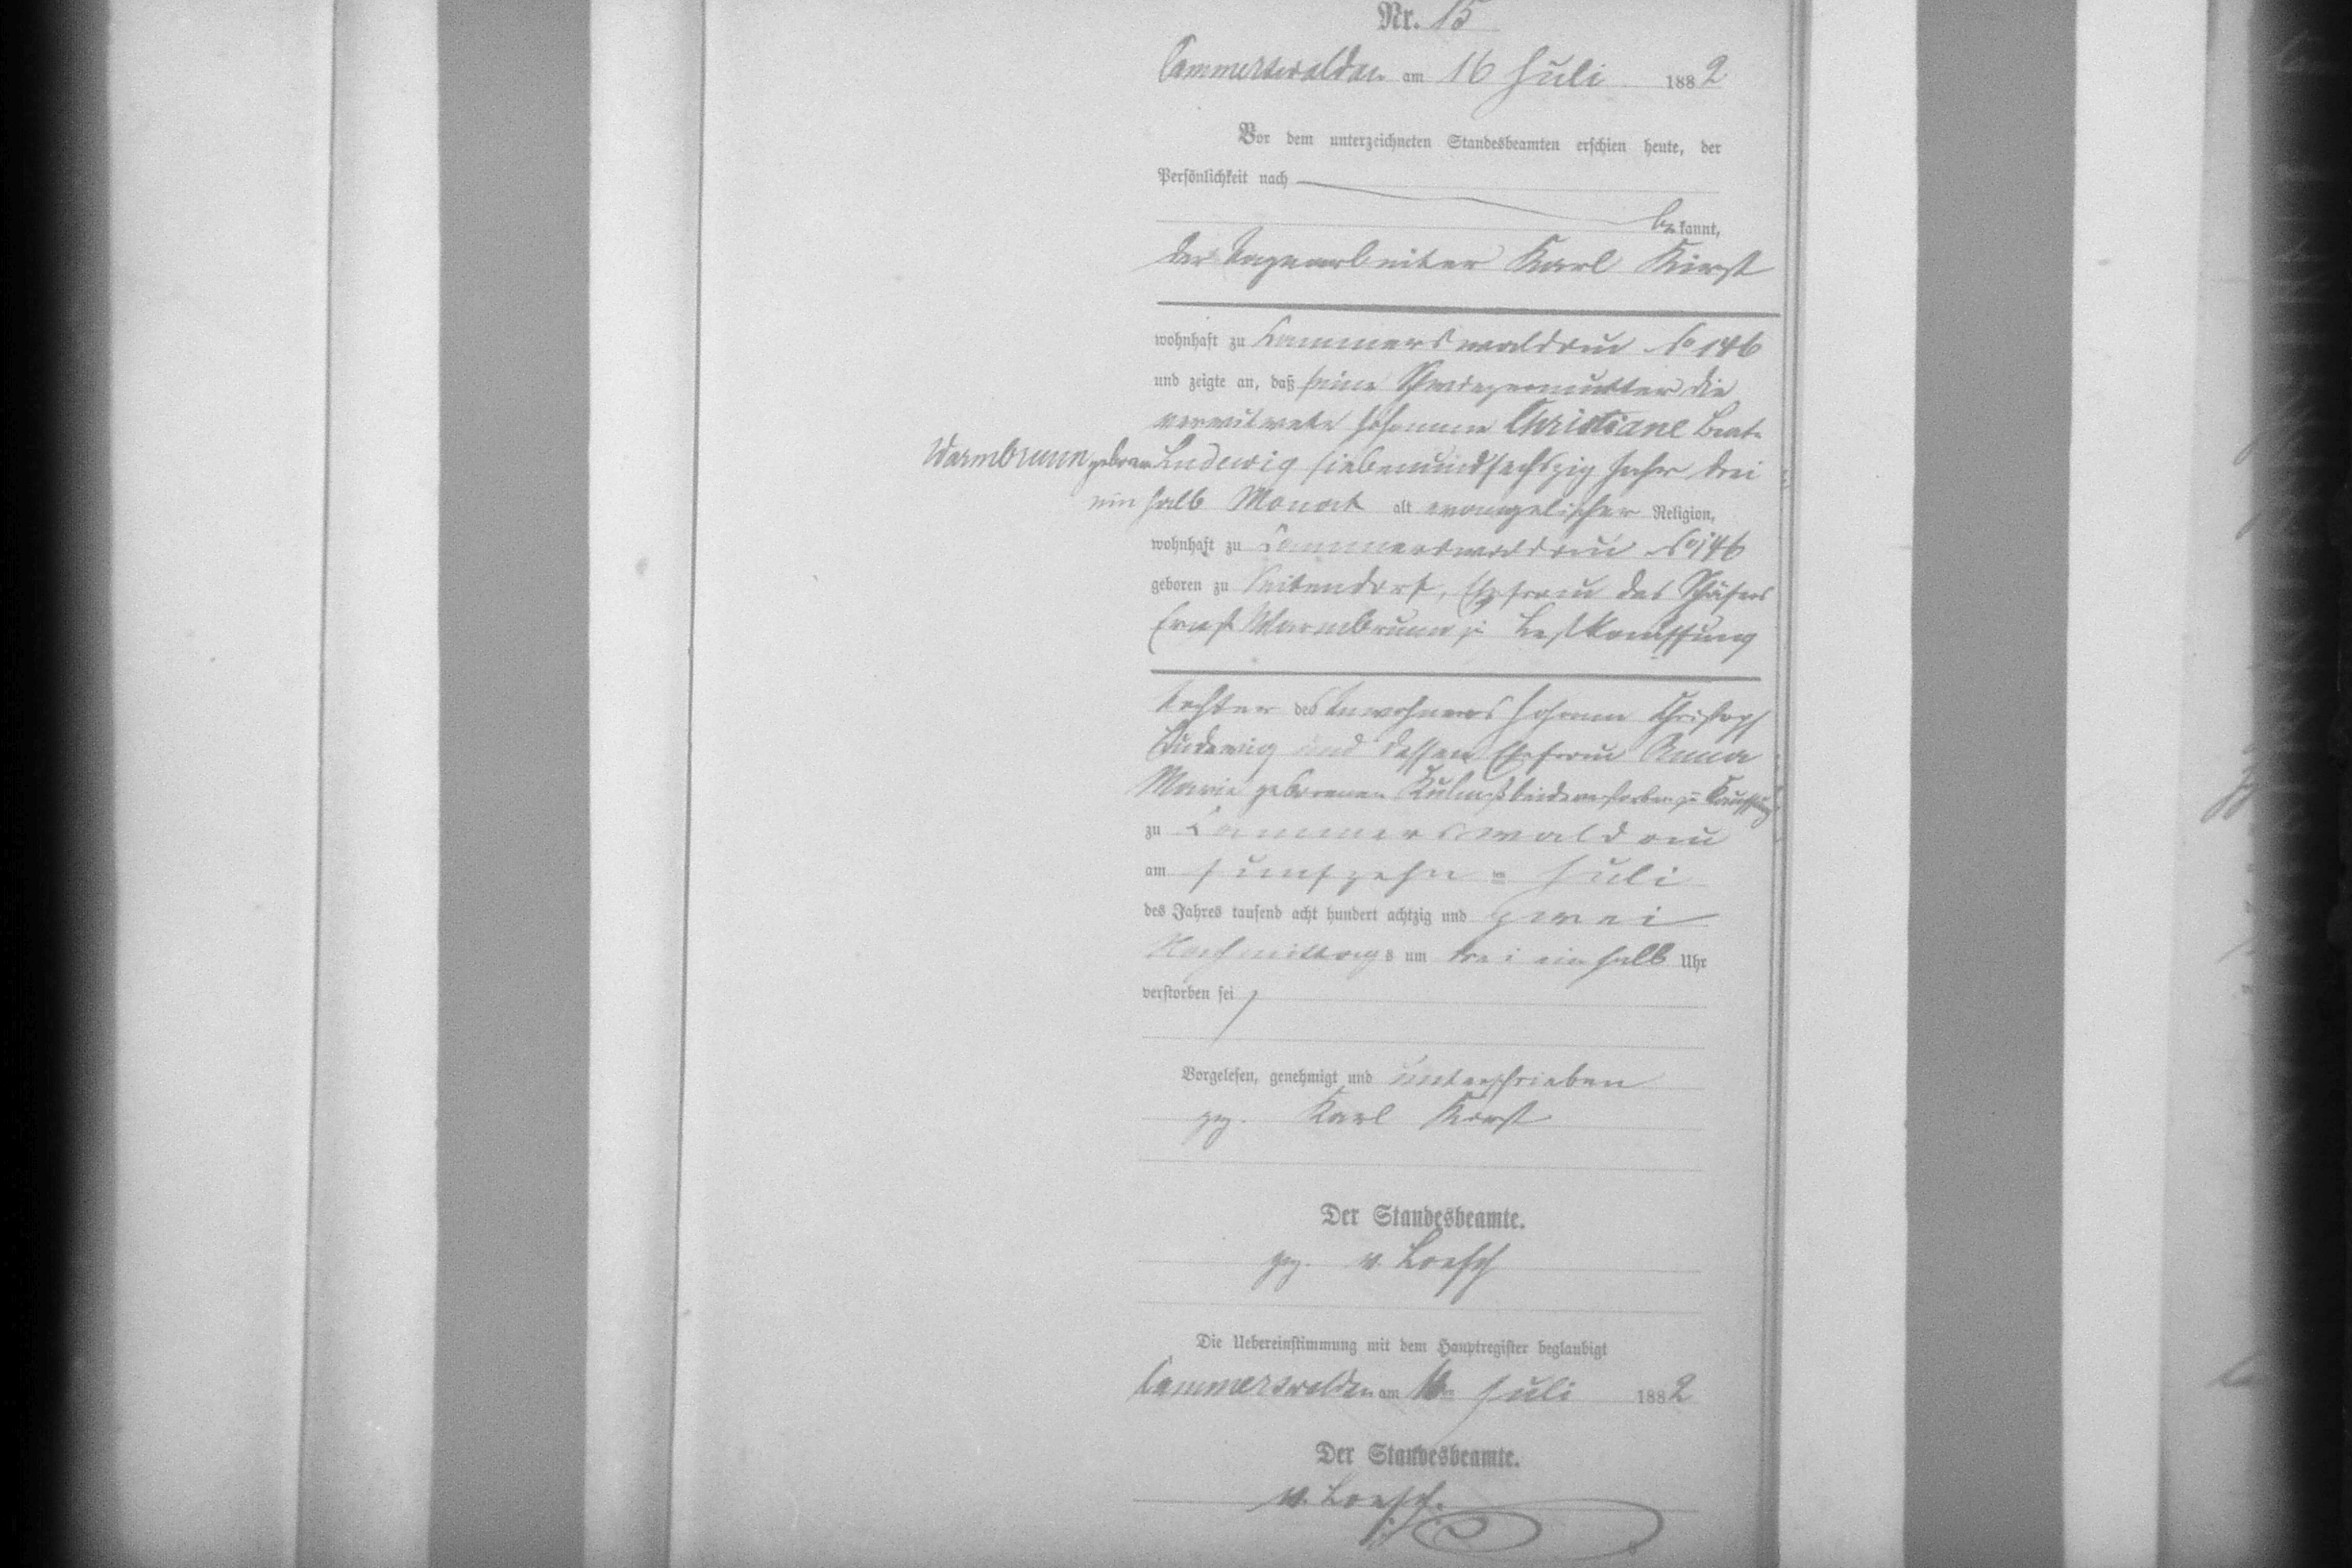 Nr. 15
Cammerswaldau am 16 Juli 1882
Vor dem unterzeichneten Standesbeamten erschien heute, der
Persönlichkeit nach
bekannt,
der Tagearbeiter Karl Kirst
wohnhaft zu Kammerswaldau No 146
und zeigte an, daß seine Schwiegermutter die
verwitwete Johanne Christiane Beate
Warmbrunn geborene Ludewig siebenundsechszig Jahr drei
ein halb Monat alt evangelischer Religion,
wohnhaft zu Kammerswaldau No 146
geboren zu Seitendorf, Ehefrau des Schäfers
Ernst Warmbrunn zu
Tochter des Inwohners Johann Christoph
Ludewig und dessen Ehefrau Anna
Marie geborenen beide verstorben zu Kauffung
zu Kammerswaldau
am fünfzehn = Juli
des Jahres tausend acht hundert achtzig und zwei
Nachmittags um drei ein halb Uhr
verstorben sei
Vorgelesen, genehmigt und unterschrieben
gez. Karl Kirst
Der Standesbeamte.
gez. v. Loesch
Die Uebereinstimmung mit dem Hauptregister beglaubigt
Cammerswaldau am 16ten Juli 1882
Der Standesbeamte.
v. Loesch.